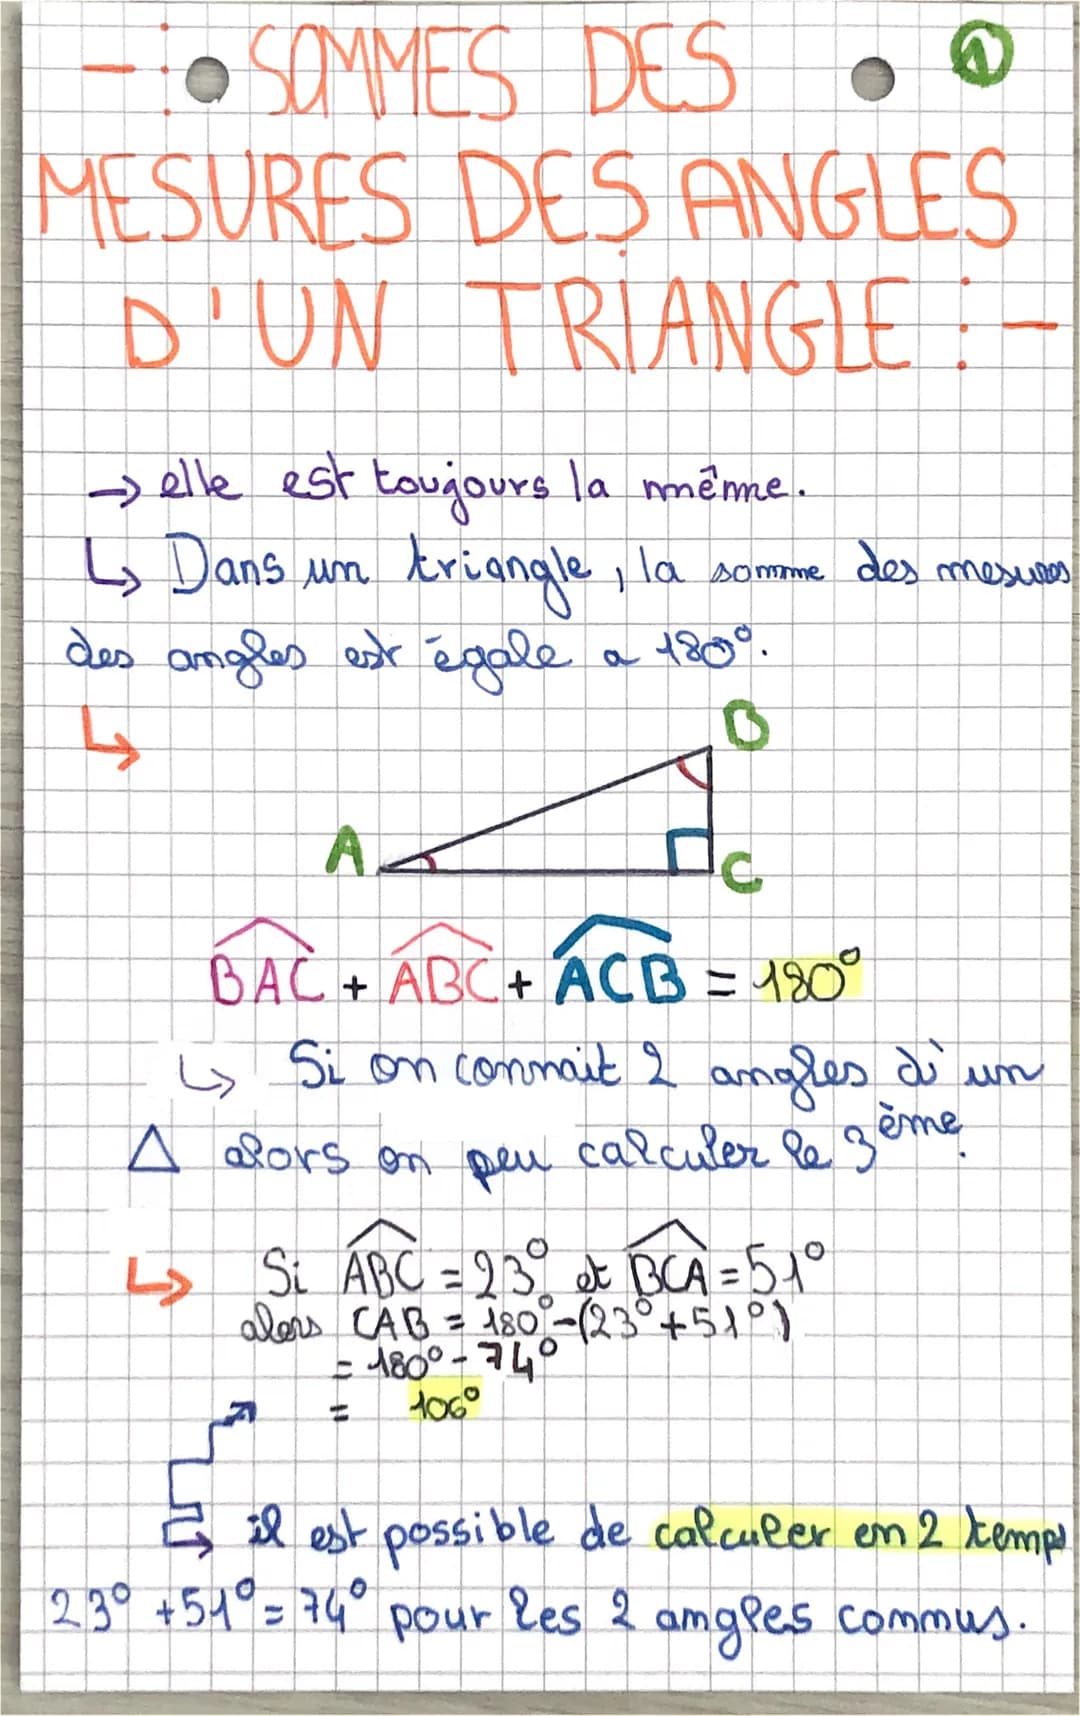 ①
-: SOMMES DES
MESURES DES ANGLES
D'UN TRIANGLE :-
→ elle est toujours la même.
↳ Dans un triangle, la somme des mesures
des angles est égale a 180°.
↳
B
A
C
BAC + ABC + ACB = 180°
↳ Si on connait 2 angles d'un
Δ alors on peu calculer le 3ème.
↳ Si ABC = 23° et BCA = 51°
alors CAB = 180° - (23° + 51°)
= 180° - 74°
= 106°
↳ il est possible de calculer en 2 temps
23° + 51° = 74° pour les 2 angles commus.